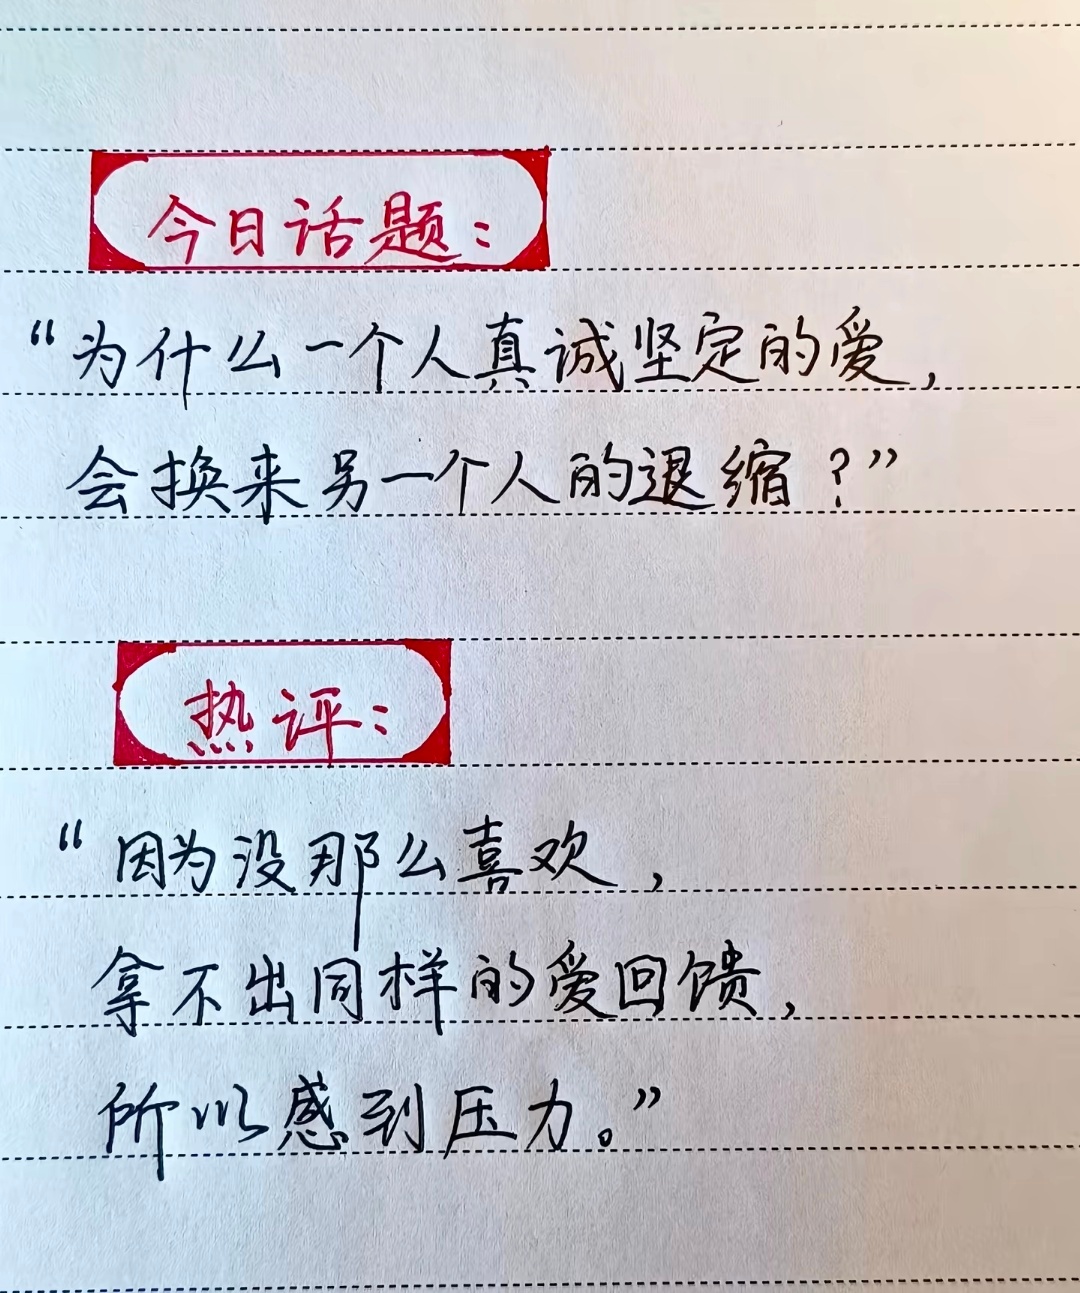 今日话题：
“为什么一个人真诚坚定的爱，
会换来另一个人的退缩？”
热评：
“因为没那么喜欢，
拿不出同样的爱回馈，
所以感到压力。”